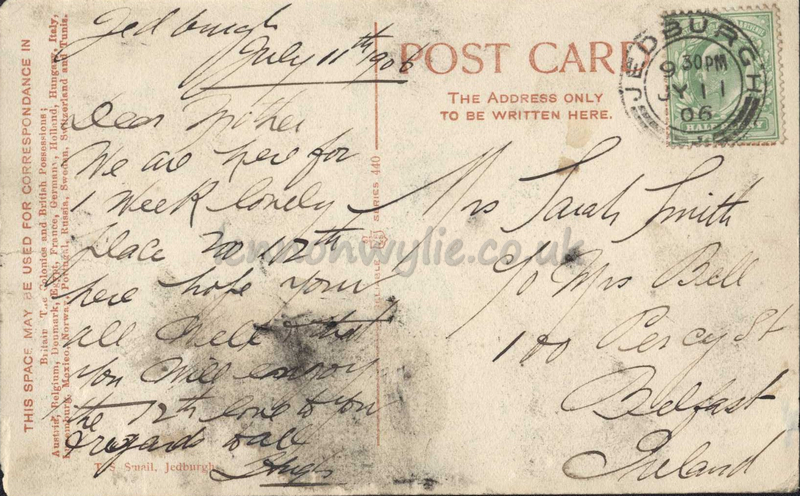 Jedburgh
July 11th 1906
Dear Mother
We are here for
1 Week lonely
place no 12th
here hope your
all well & that
you will enjoy
the 12th love to you
& regards to all
Hugh
POST CARD
THE ADDRESS ONLY
TO BE WRITTEN HERE.
JEDBURGH
9 30PM
JY 11
06
HALF
Mrs Sarah Smith
c/o Mrs Bell
100 Percy St
Belfast
Ireland
THIS SPACE MAY BE USED FOR CORRESPONDANCE IN
Britain The Colonies and British Possessions;
Austria, Belgium, Denmark, Egypt, France, Germany, Holland, Hungary, Italy,
Luxemburg, Mexico, Norway, Portugal, Russia, Sweden, Switzerland and Tunis.
SERIES 440
T. S. Smail, Jedburgh
lennonwylie.co.uk